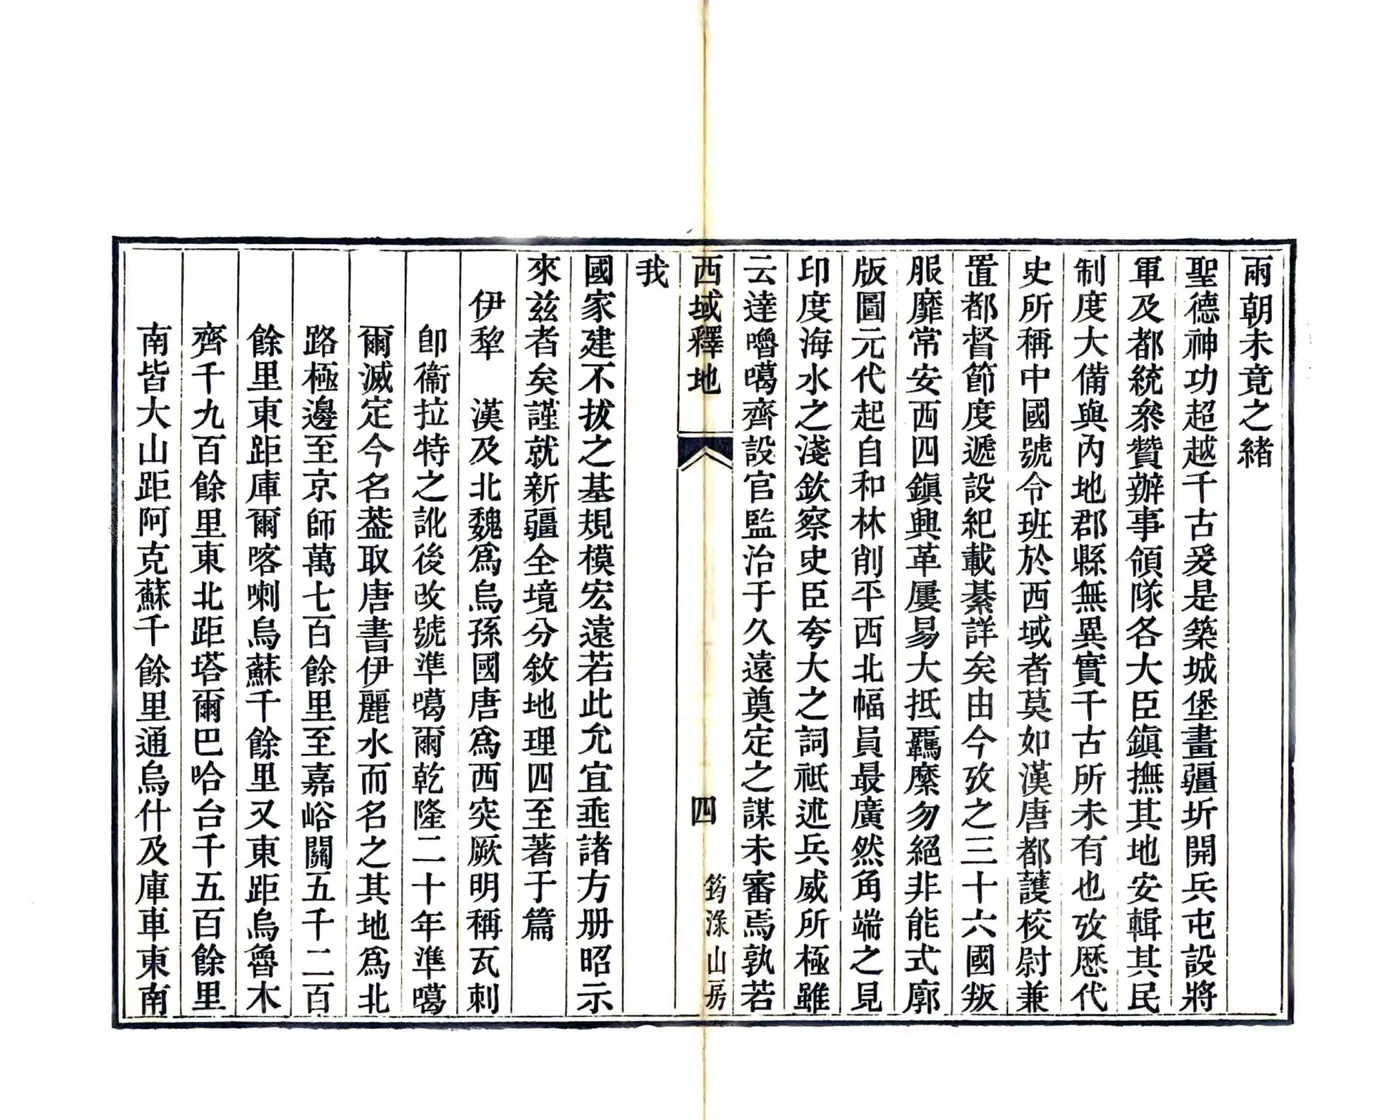 兩朝未竟之緒
聖德神功超越千古爰是築城堡畫疆圻開兵屯設將
軍及都統叅贊辦事領隊各大臣鎭撫其地安輯其民
制度大備與內地郡縣無異實千古所未有也攷厯代
史所稱中國號令班於西域者莫如漢唐都護校尉兼
置都督節度遞設紀載綦詳矣由今攷之三十六國叛
服靡常安西四鎭興革屢易大抵羈縻勿絕非能式廓
版圖元代起自和林削平西北幅員最廣然角端之見
印度海水之淺欽察史臣夸大之詞祗述兵威所極雖
云達嚕噶齊設官監治于久遠奠定之謀未審焉孰若
西域釋地 四 筠淥山房
我
國家建不拔之基規模宏遠若此允宜乖諸方册昭示
來兹者矣謹就新疆全境分敘地理四至著于篇
伊犂 漢及北魏爲烏孫國唐爲西突厥明稱瓦刺
卽衞拉特之訛後改號準噶爾乾隆二十年準噶
爾滅定今名葢取唐書伊麗水而名之其地爲北
路極邊至京師萬七百餘里至嘉峪關五千二百
餘里東距庫爾喀喇烏蘇千餘里又東距烏魯木
齊千九百餘里東北距塔爾巴哈台千五百餘里
南皆大山距阿克蘇千餘里通烏什及庫車東南